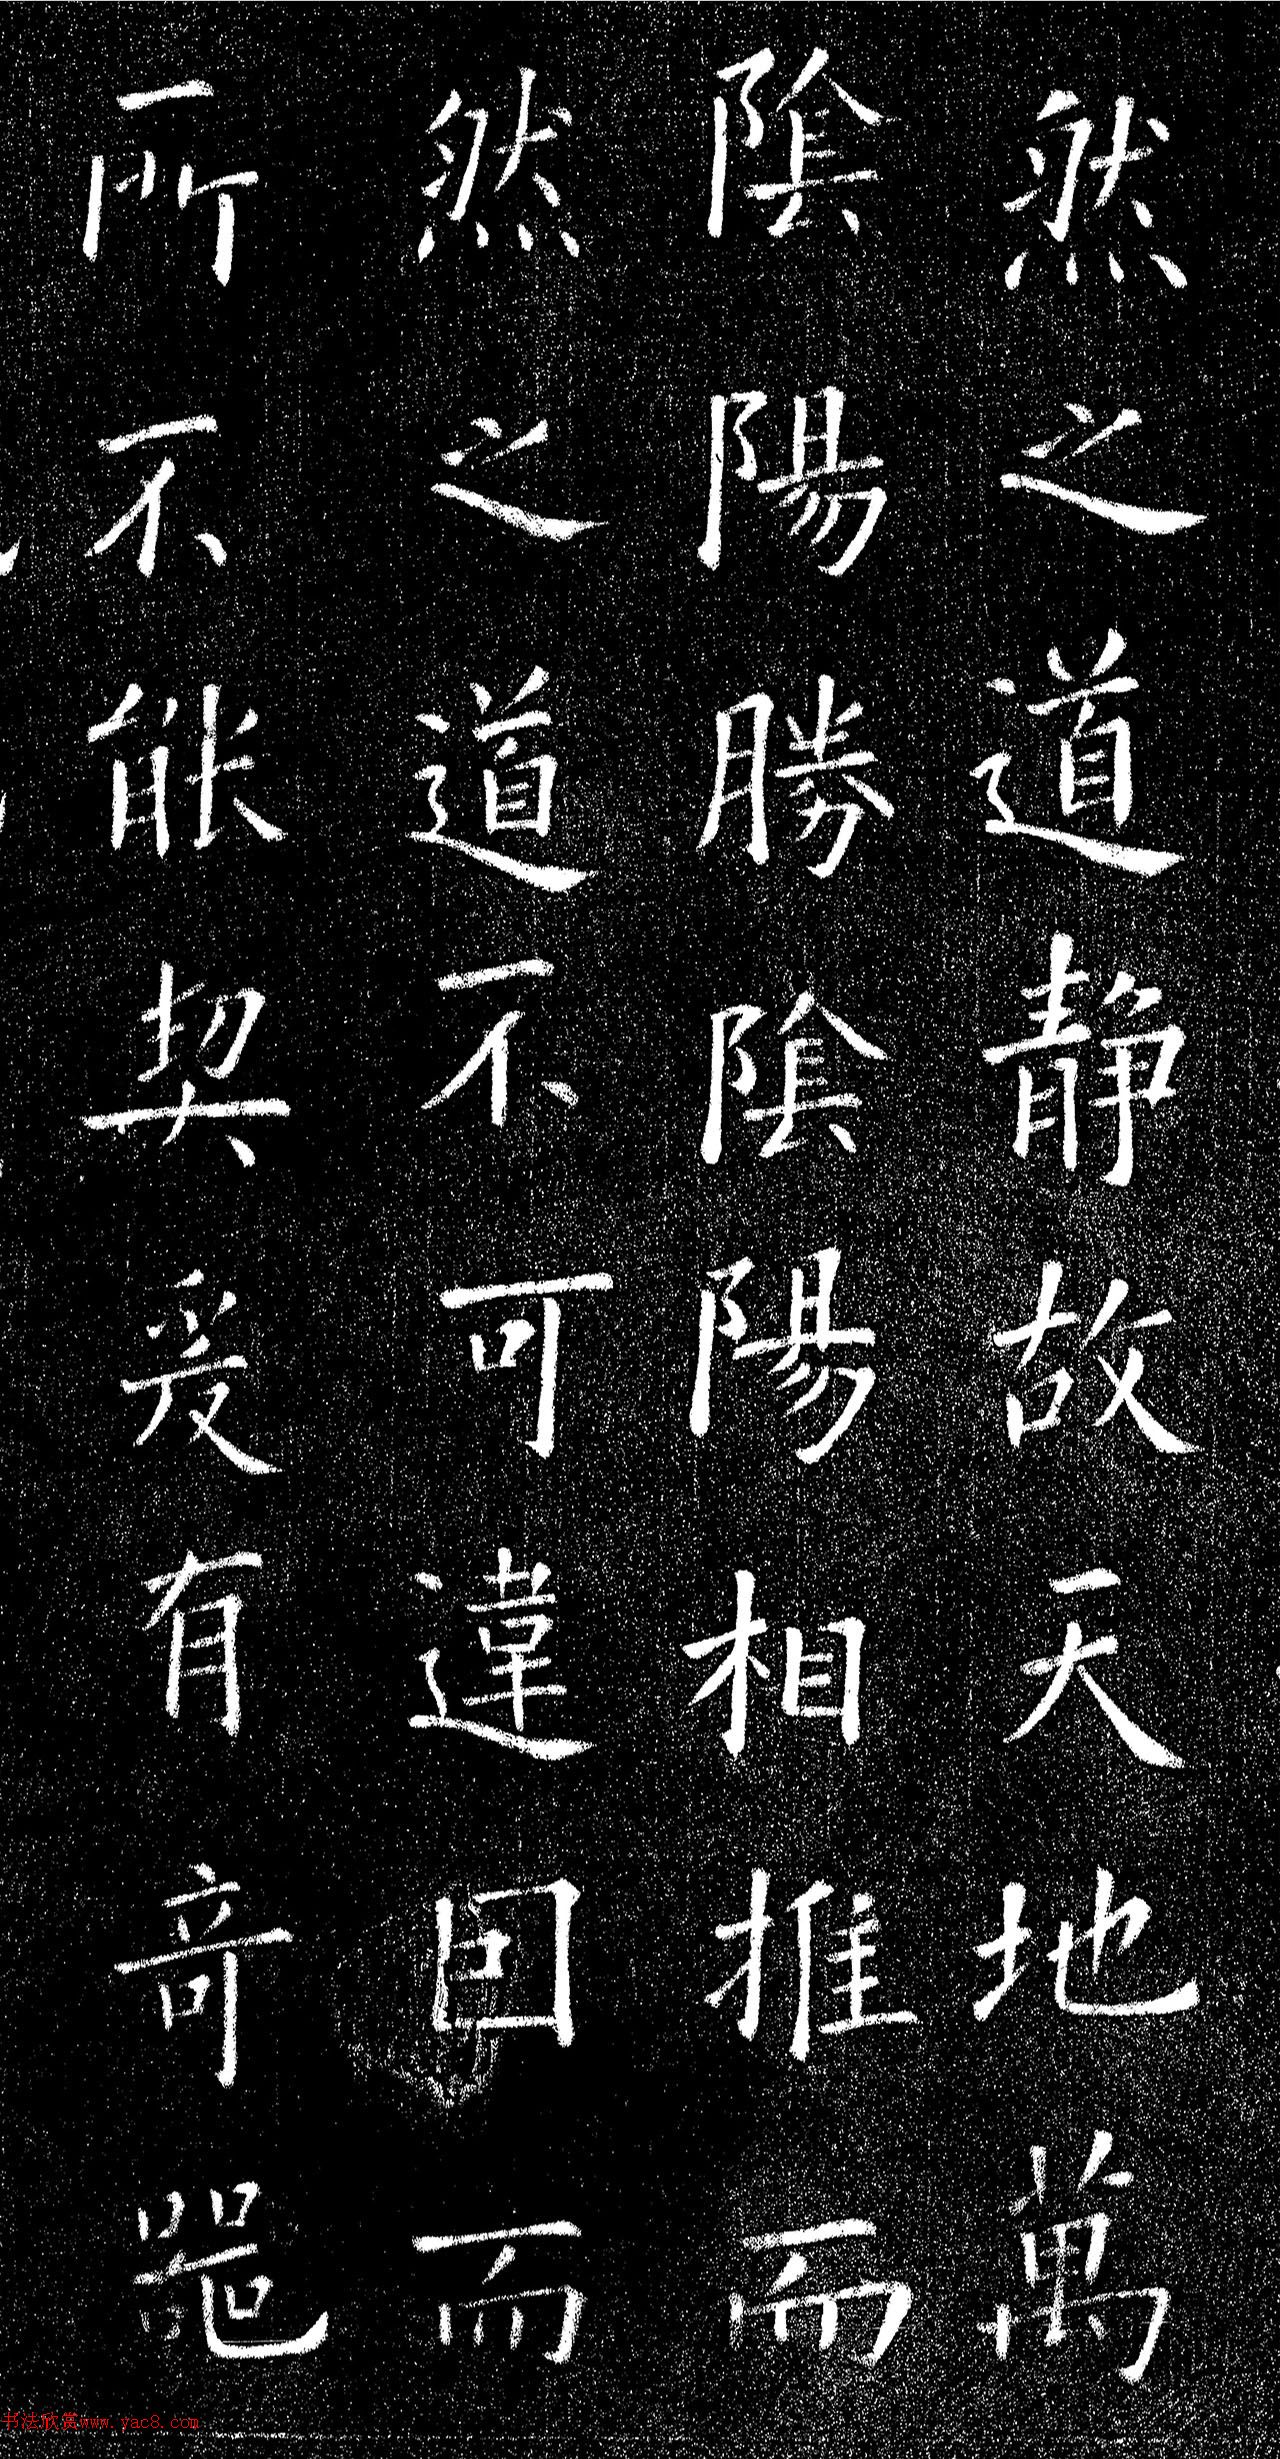 然之道靜故天地萬
陰陽勝陰陽相推而
然之道不可違因而
所不能契爰有奇器
书法欣赏www.yac8.com